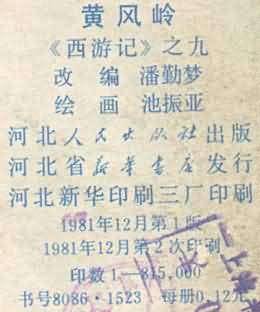 黄风岭
《西游记》之九
改编 潘勤梦
绘画 池振亚
河北人民出版社出版
河北省新华书店发行
河北新华印刷三厂印刷
1981年12月第1版
1981年12月第2次印刷
印数1—815,000
书号8086·1523 每册0.12元